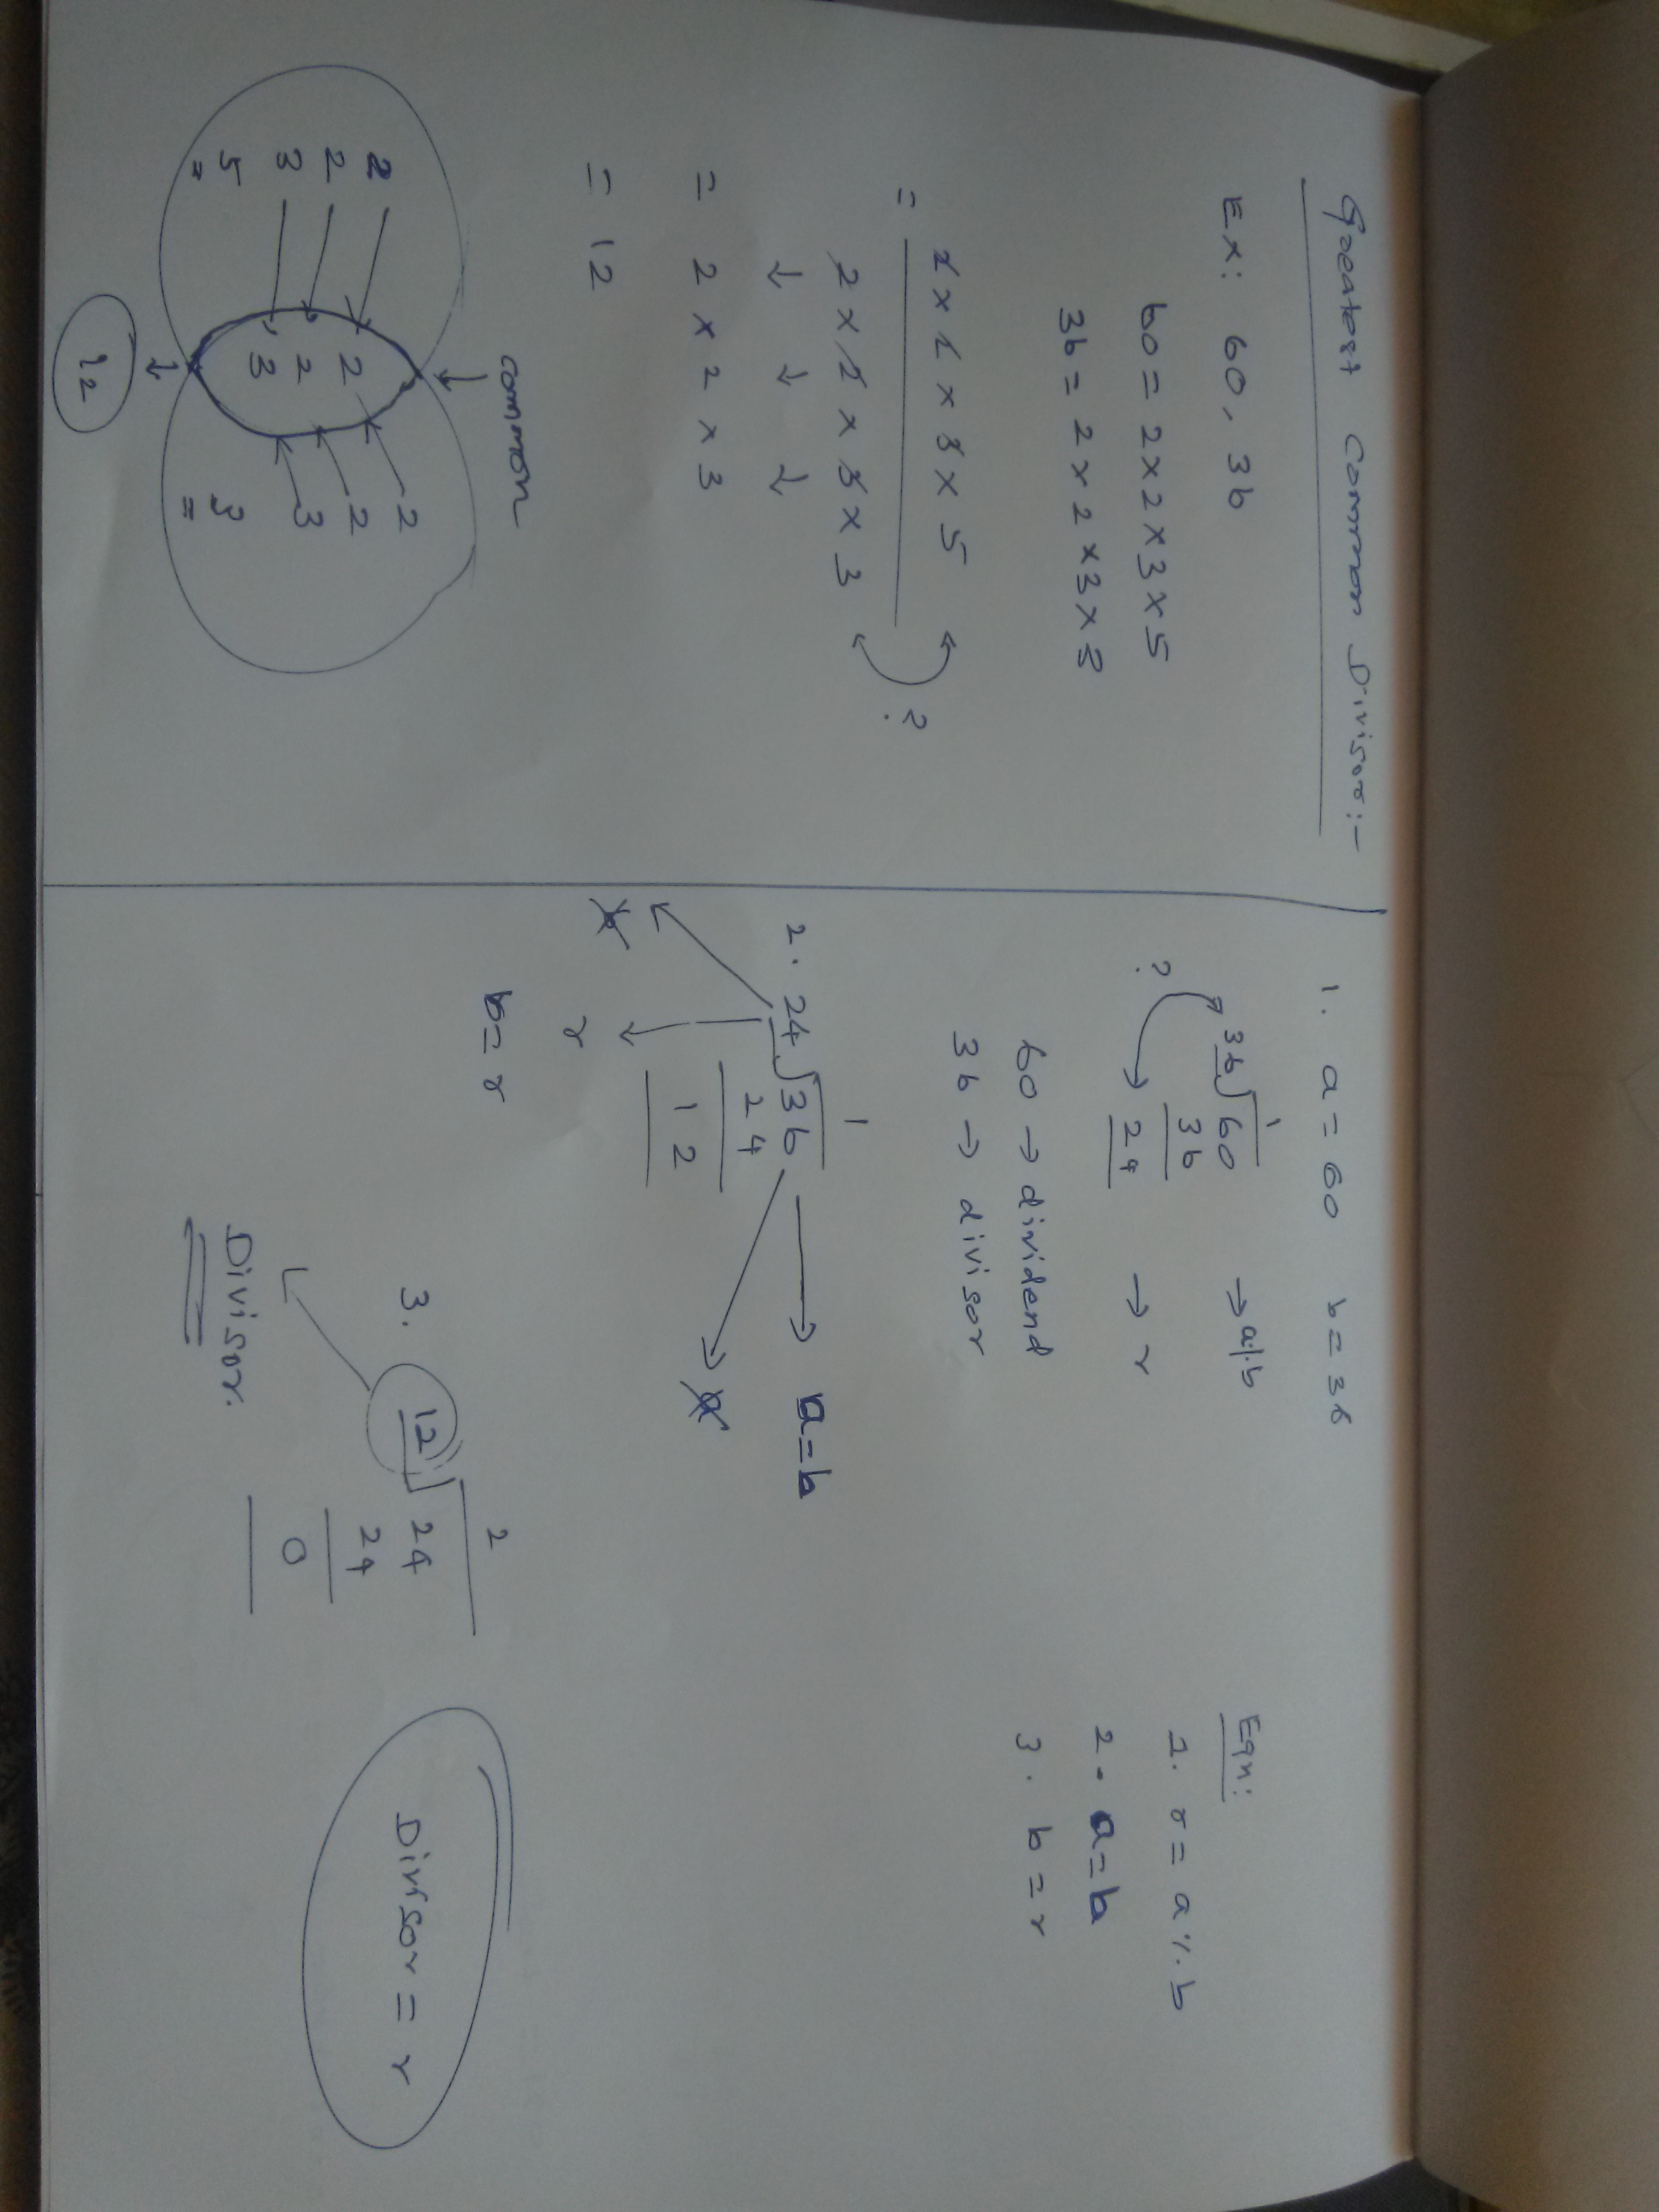 Greatest Common Divisor:-
Ex: 60, 36
60 = 2 x 2 x 3 x 5
36 = 2 x 2 x 3 x 3
= 2 x 2 x 3 x 5
2 x 2 x 3 x 3
?
↓ ↓ ↓
= 2 x 2 x 3
= 12
common
2 2 2
2 2 2
3 3 3
5 3
12
1. a = 60 b = 36
1
36 60 → a % b
36
? 24 → r
60 → dividend
36 → divisor
1
2. 24 36 → a = b
24
a
12
b
r
b = r
2
3. 12 24
24
0
Divisor.
Eqn:
1. r = a % b
2. a = b
3. b = r
Divisor = r